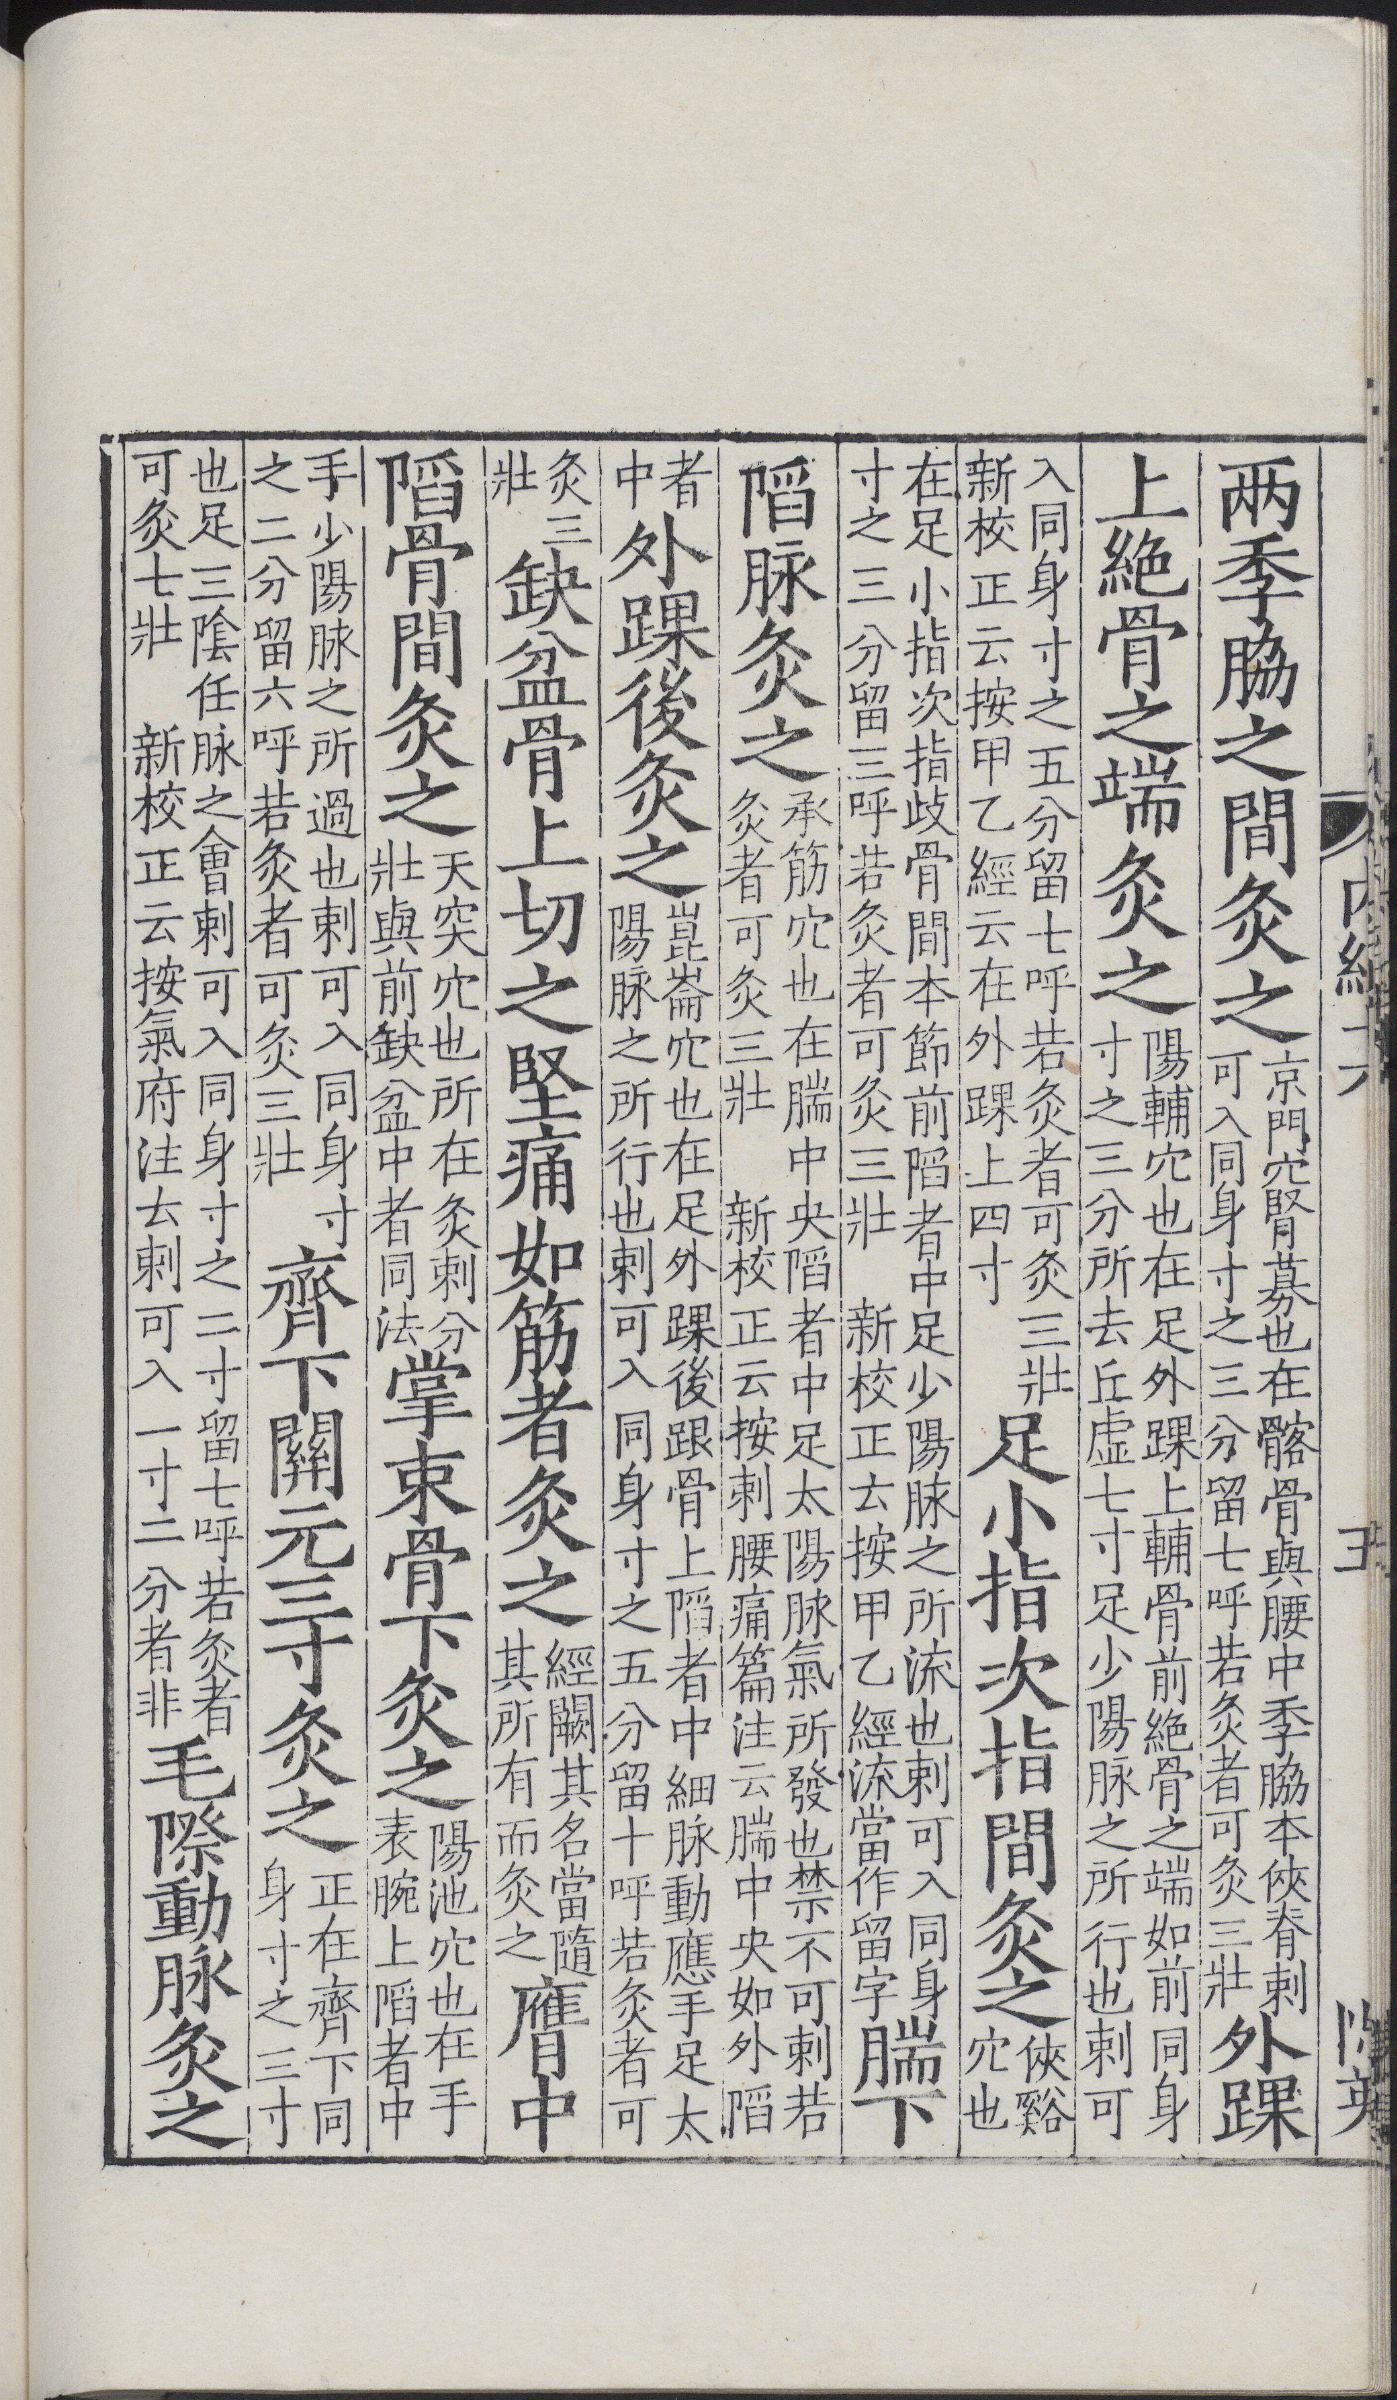 两季脇之間灸之京門穴腎募也在髂骨與腰中季脇本俠脊刺可入同身寸之三分留七呼若灸者可灸三壯外踝
上絶骨之端灸之陽輔穴也在足外踝上輔骨前絶骨之端如前同身寸之三分所去丘虛七寸足少陽脉之所行也刺可
入同身寸之五分留七呼若灸者可灸三壯新校正云按甲乙經云在外踝上四寸足小指次指間灸之俠谿穴也
在足小指次指歧骨間本節前陷者中足少陽脉之所流也刺可入同身寸之三分留三呼若灸者可灸三壯 新校正云按甲乙經流當作留字腨下
陷脉灸之承筋穴也在腨中央陷者中足太陽脉氣所發也禁不可刺若灸者可灸三壯 新校正云按刺腰痛篇注云腨中央如外陷
者中外踝後灸之崑崙穴也在足外踝後跟骨上陷者中細脉動應手足太陽脉之所行也刺可入同身寸之五分留十呼若灸者可
灸三壯缺盆骨上切之堅痛如筋者灸之經闕其名當隨其所有而灸之膺中
陷骨間灸之天突穴也所在灸刺分壯與前缺盆中者同法掌束骨下灸之陽池穴也在手表腕上陷者中
手少陽脉之所過也刺可入同身寸之二分留六呼若灸者可灸三壯齊下關元三寸灸之正在齊下同身寸之三寸
也足三陰任脉之會刺可入同身寸之二寸留七呼若灸者可灸七壯 新校正云按氣府注云刺可入一寸二分者非毛際動脉灸之